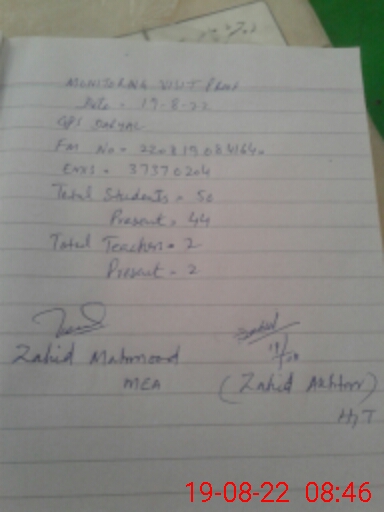 MONITORING VISIT PROOF
Date = 19-8-22
GPS
FM No = 220819084164
EMIS = 37370204
Total Students = 50
Present = 44
Total Teacher = 2
Present = 2
Zahid Mahmood
MEA
19/
(Zahid Akhtar)
H,T
19-08-22 08:46